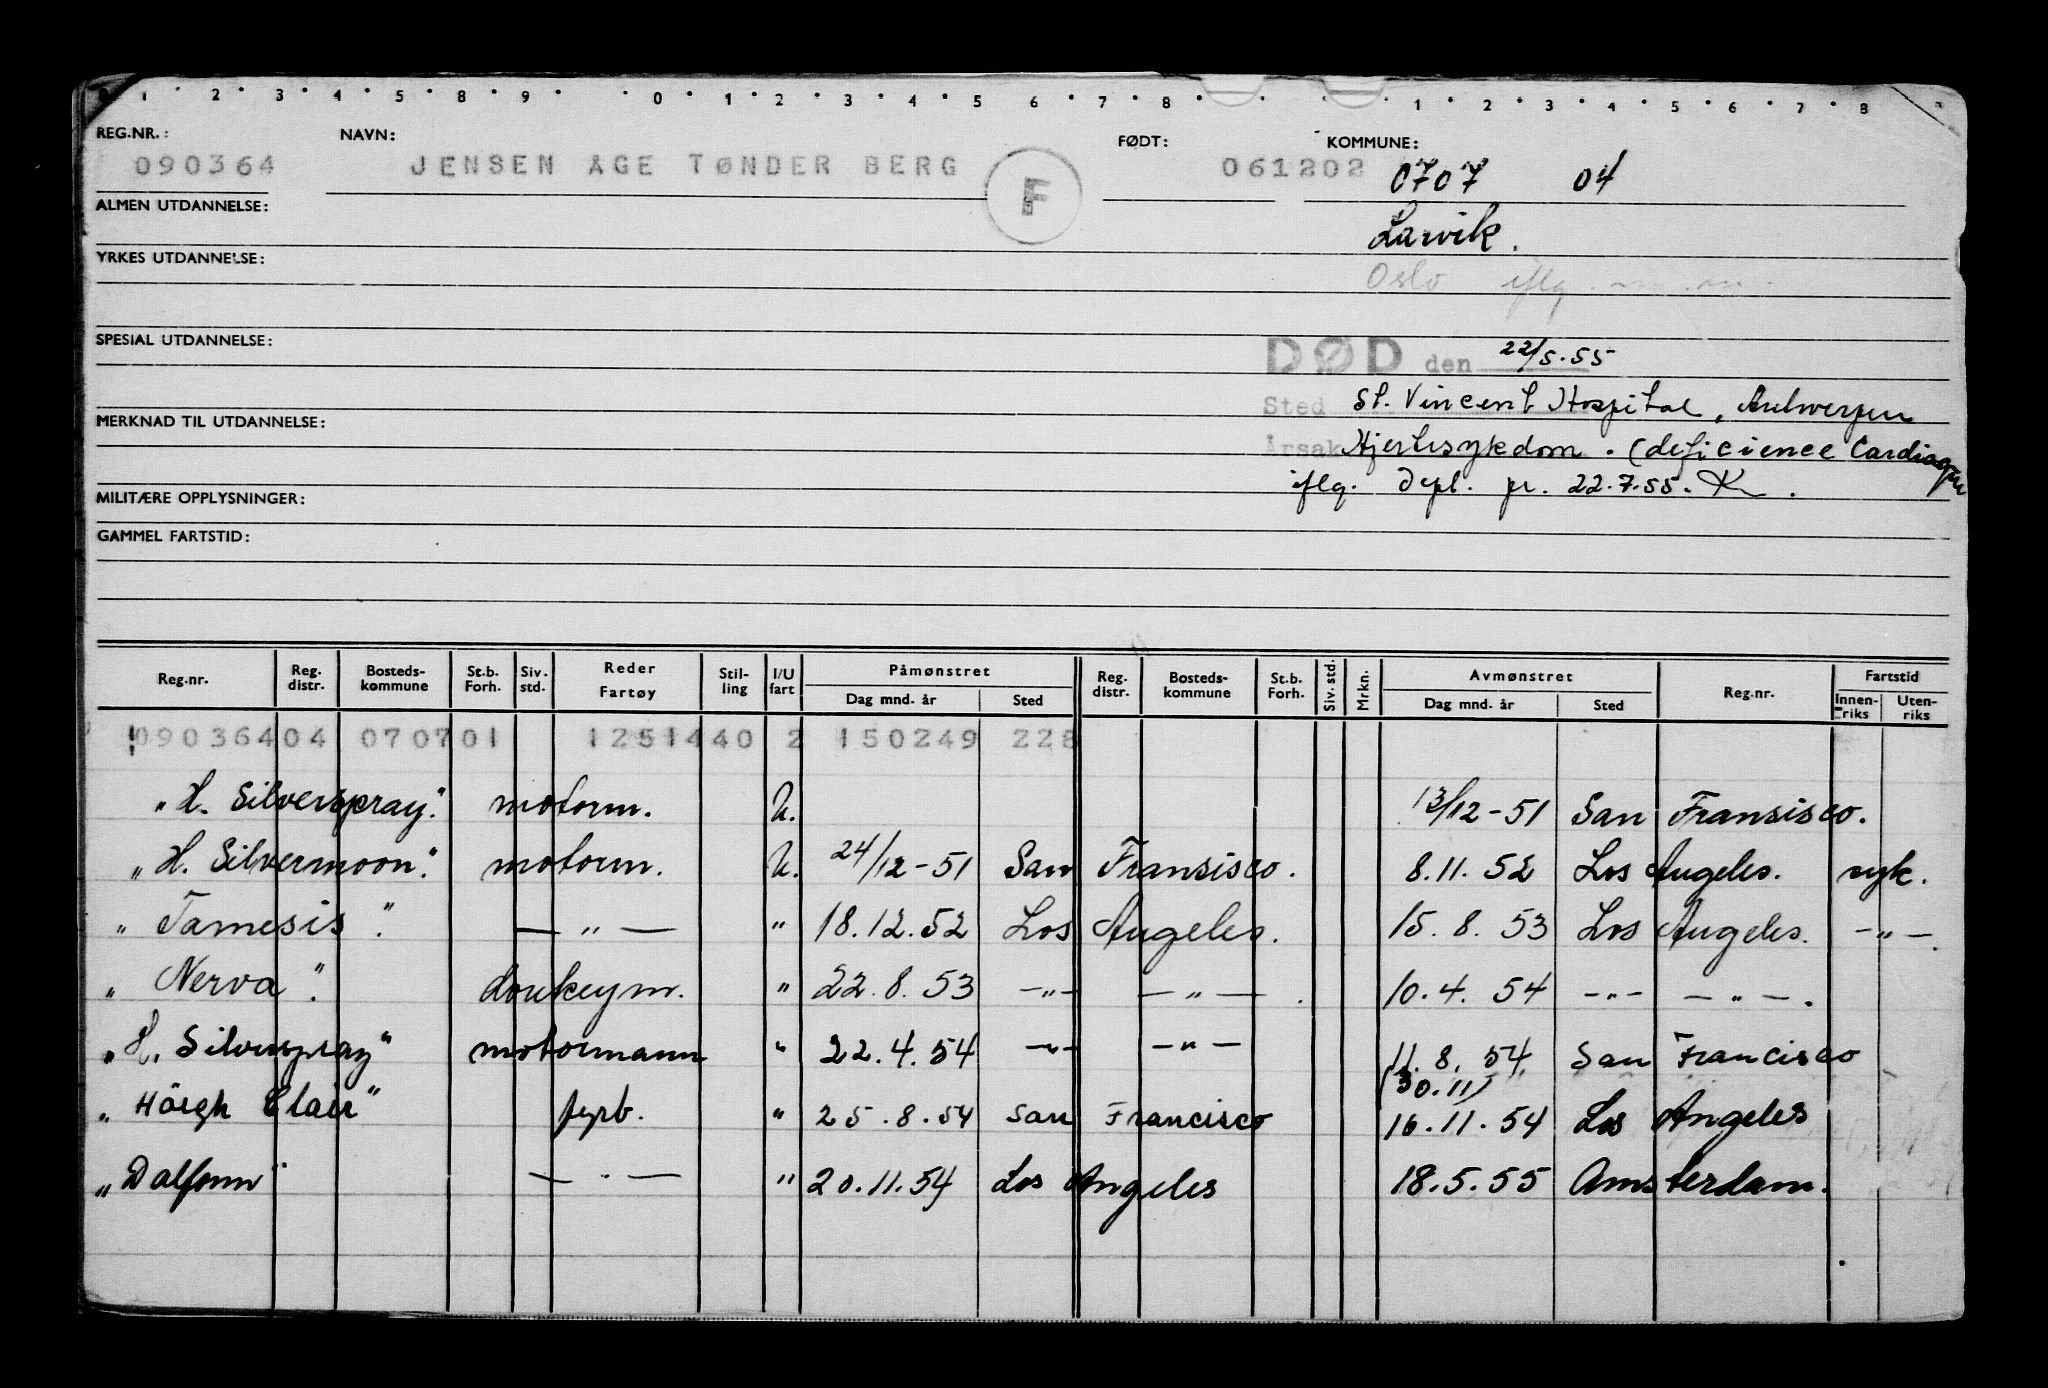 1 2 3 4 5 8 9 0 1 2 3 4 5 6 7 8 1 2 3 4 5 6 7 8
REG.NR.: NAVN: FØDT: KOMMUNE:
090364 JENSEN ÅGE TØNDER BERG F 061202 0707 04
ALMEN UTDANNELSE: Larvik.
YRKES UTDANNELSE: Oslo iflg.
SPESIAL UTDANNELSE: DØD den 22/5.55
Sted St. Vincent Hospital, Antwerpen
MERKNAD TIL UTDANNELSE:
Årsak Hjertesykdom. (deficience Cardiaque
MILITÆRE OPPLYSNINGER: iflg. Depl. pr. 22.7.55.
GAMMEL FARTSTID:
Reg.nr. Reg. distr. Bosteds-kommune St.b. Forh. Siv. std. Reder Fartøy Stil-ling I/U fart Påmønstret Dag mnd. år Sted Reg. distr. Bosteds-kommune St.b. Forh. Siv. std. Mrkn. Avmønstret Dag mnd. år Sted Reg.nr. Fartstid Innen-riks Uten-riks
090364 04 0707 01 1251440 2 150249 228
"H. Silverspray". motorm. U. 13/12-51 San Fransisco.
"H. Silvermoon". motorm. U. 24/12-51 San Fransisco. 8.11.52 Los Angeles. syk.
"Tamesis". — " — " 18.12.52 Los Angeles. 15.8.53 Los Angeles. -"-.
"Nerva". donkeym. " 22.8.53 -"- — " —. 10.4.54 -"- — " —.
"H. Silverspray" motormann " 22.4.54 -"- — " — 11.8.54 San Francisco
(30.11)
"Höegh Clair" fyrb. " 25.8.54 San Francisco 16.11.54 Los Angeles
"Dalfonn" — " — " 20.11.54 Los Angeles 18.5.55 Amsterdam.